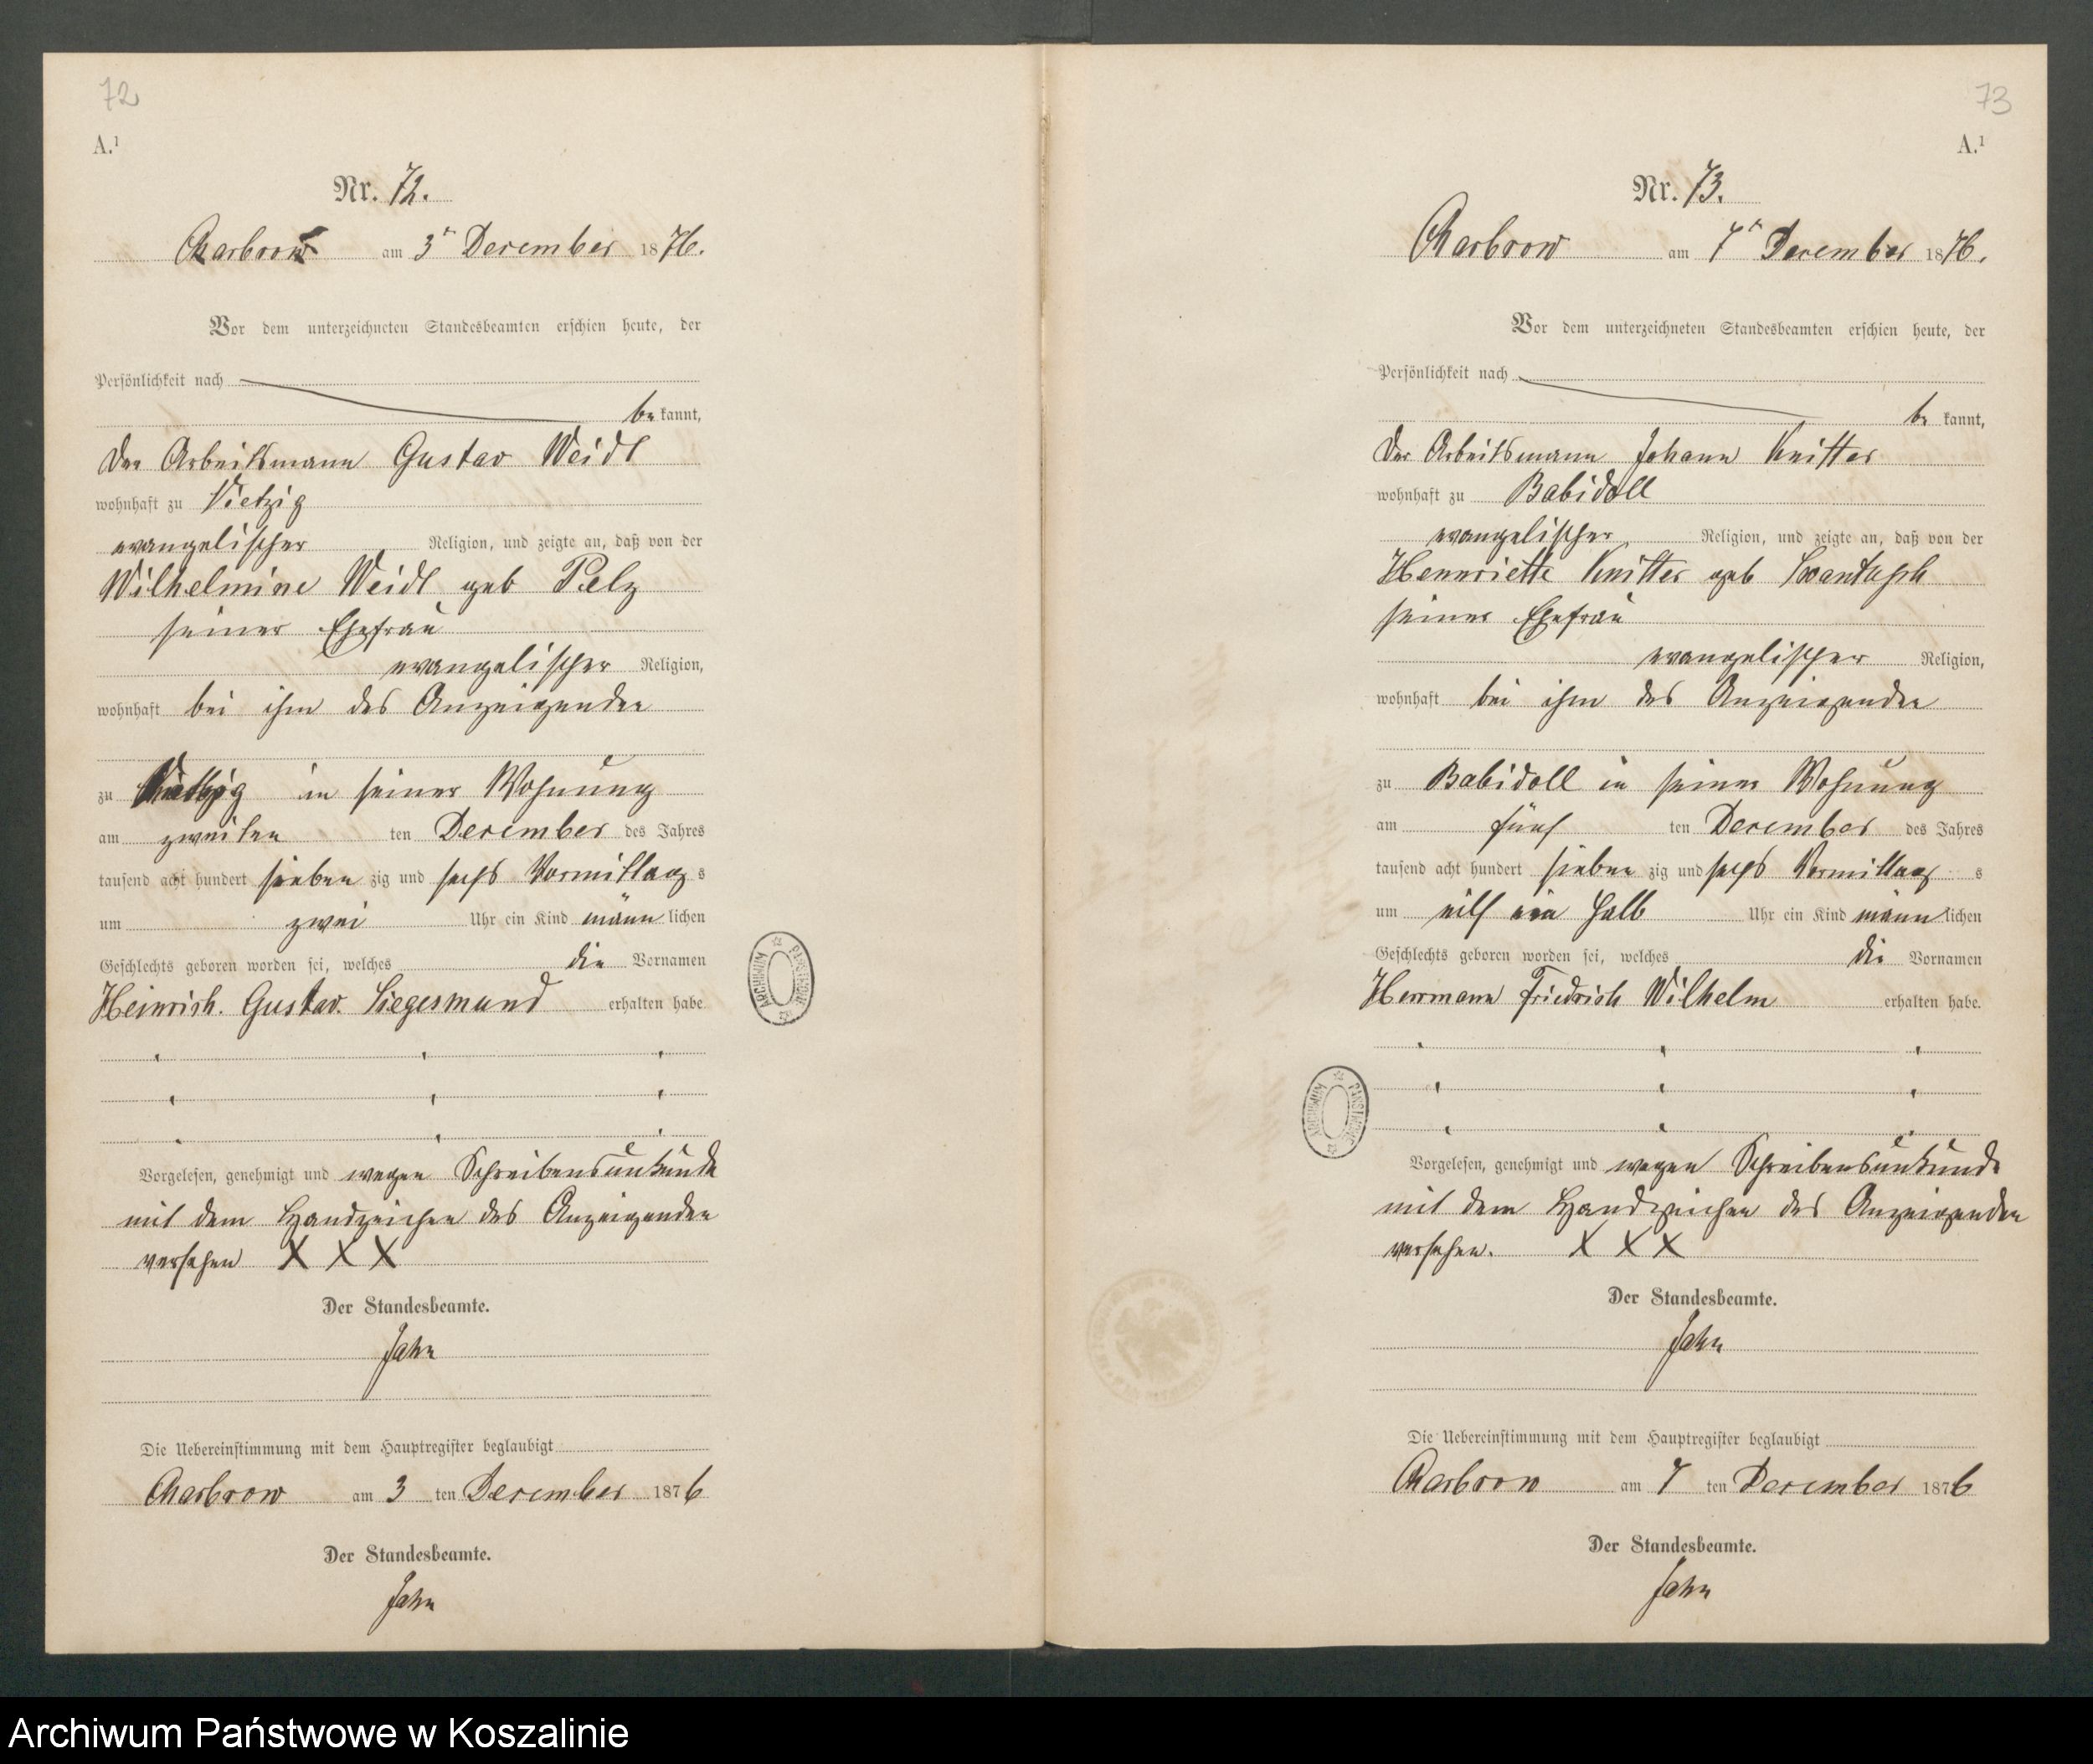 72
A.¹
Nr. 72.
Charbrow am 3ᵗ December 1876.
Vor dem unterzeichneten Standesbeamten erschien heute, der
Persönlichkeit nach
be kannt,
der Arbeitsmann Gustav Weidt
wohnhaft zu Vietzig
evangelischer Religion, und zeigte an, daß von der
Wilhelmine Weidt geb Pelz
seiner Ehefrau
evangelischer Religion,
wohnhaft bei ihm des Anzeigenden
zu Vietzig in seiner Wohnung
am zweiten ten December des Jahres
tausend acht hundert sieben zig und sechs Vormittag s
um zwei Uhr ein Kind männ lichen
Geschlechts geboren worden sei, welches die Vornamen
Heinrich. Gustav. Siegesmund erhalten habe
Vorgelesen, genehmigt und wegen Schreibensunkunde
mit dem Handzeichen des Anzeigenden
versehen X X X
Der Standesbeamte.
Jahn
Die Uebereinstimmung mit dem Hauptregister beglaubigt
Charbrow am 3 ten December 1876
Der Standesbeamte.
Jahn
ARCHIWUM PAŃSTWOWE
73
A.¹
Nr. 73.
Charbrow am 7ᵗ December 1876.
Vor dem unterzeichneten Standesbeamten erschien heute, der
Persönlichkeit nach
be kannt,
der Arbeitsmann Johann Knitter
wohnhaft zu Babidoll
evangelischer Religion, und zeigte an, daß von der
Hennriette Knitter geb
seiner Ehefrau
evangelischer Religion,
wohnhaft bei ihm des Anzeigenden
zu Babidoll in seiner Wohnung
am fünf ten December des Jahres
tausend acht hundert sieben zig und sechs Vormittag s
um eilf ein halb Uhr ein Kind männ lichen
Geschlechts geboren worden sei, welches die Vornamen
Herrmann Friedrich Wilhelm erhalten habe.
Vorgelesen, genehmigt und wegen Schreibensunkunde
mit dem Handzeichen des Anzeigenden
versehen. X X X
Der Standesbeamte.
Jahn
Die Uebereinstimmung mit dem Hauptregister beglaubigt
Charbrow am 7 ten December 1876
Der Standesbeamte.
Jahn
ARCHIWUM PAŃSTWOWE
Archiwum Państwowe w Koszalinie